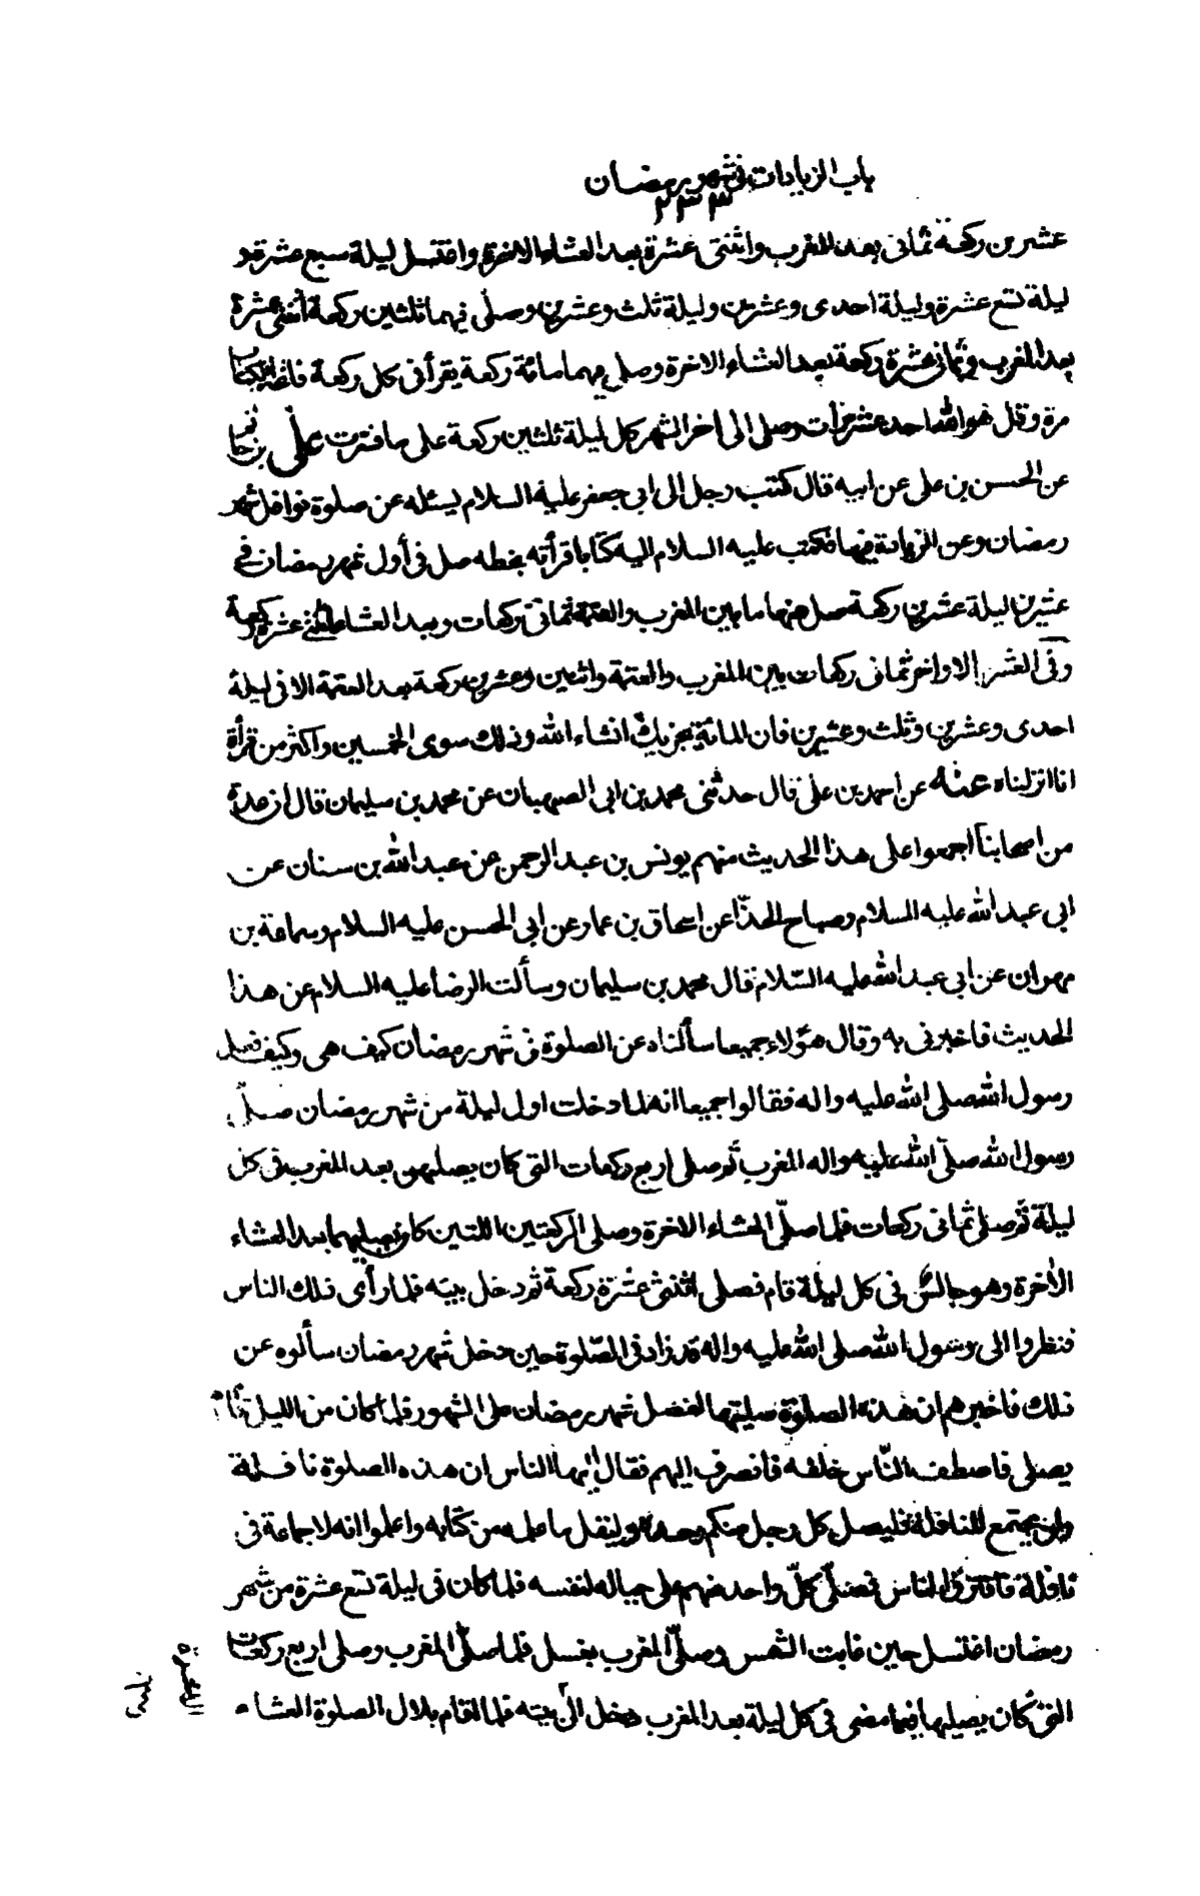 باب الزيادات في شهر رمضان
٢٣٣
عشرين ركعة ثماني بعد المغرب واثنتي عشرة بعد العشاء الاخرة واغتسل ليلة سبع عشرة و
ليلة تسع عشرة وليلة احدى وعشرين وليلة ثلث وعشرين وصلى فيهما ثلثين ركعة اثنتي عشرة
بعد المغرب وثماني عشرة ركعة بعد العشاء الاخرة وصلى فيهما مائة ركعة يقرأ في كل ركعة فاتحة الكتاب
مرة وقل هو الله احد عشر مرات وصلى الى اخر الشهر كل ليلة ثلثين ركعة على ما فسرت علي بن حاتم
عن الحسن بن علي عن ابيه قال كتب رجل الى ابي جعفر عليه السلام يسئله عن صلوة نوافل شهر
رمضان وعن الزيادة فيها فكتب عليه السلام اليه كتابا قرأته بخطه صل في أول شهر رمضان في
عشرين ليلة عشرين ركعة صل منها ما بين المغرب والعتمة ثماني ركعات وبعد العشاء اثنتي عشرة ركعة
وفي العشر الاواخر ثماني ركعات بين المغرب والعتمة واثنتين وعشرين ركعة بعد العتمة الا في ليلة
احدى وعشرين وثلث وعشرين فان المائة تجزيك انشاء الله وذلك سوى الخمسين واكثر من قرأة
انا انزلناه عنه عن احمد بن علي قال حدثني محمد بن ابي الصهبان عن محمد بن سليمان قال ان عدة
من اصحابنا اجمعوا على هذا الحديث منهم يونس بن عبد الرحمن عن عبد الله بن سنان عن
ابي عبد الله عليه السلام وصباح الحذا عن اسحاق بن عمار عن ابي الحسن عليه السلام وسماعة بن
مهران عن ابي عبد الله عليه السّلام قال محمد بن سليمان وسألت الرضا عليه السلام عن هذا
الحديث فاخبرني به وقال هؤلاء جميعا سألناه عن الصلوة في شهر رمضان كيف هي وكيف فعل
رسول الله صلى الله عليه واله فقالوا جميعا انه لما دخلت اول ليلة من شهر رمضان صلّى
رسول الله صلّى الله عليه واله المغرب ثم صلى اربع ركعات التي كان يصليهن بعد المغرب في كل
ليلة ثم صلى ثماني ركعات فلما صلّى العشاء الاخرة وصلى الركعتين اللتين كان يصليهما بعد العشاء
الاخرة وهو جالس في كل ليلة قام فصلى اثنتي عشرة ركعة ثم دخل بيته فلما رأى ذلك الناس
فنظروا الى رسول الله صلى الله عليه واله قد زاد في الصّلوة حين دخل شهر رمضان سألوه عن
ذلك فاخبرهم ان هذه الصلوة صليتها لفضل شهر رمضان على الشهور فلما كان من الليل قام
يصلى فاصطف النّاس خلفه فانصرف اليهم فقال ايها الناس ان هذه الصلوة نافلة
ولن يجتمع للنافلة فليصل كل رجل منكم وحده وليقل ما علمه من كتابه واعلموا انه لا جماعة في
نافلة فافترق الناس فصلّى كلّ واحد منهم على حياله لنفسه فلما كان في ليلة تسع عشرة من شهر
رمضان اغتسل حين غابت الشمس وصلّى المغرب بغسل فلما صلّى المغرب وصلى اربع ركعات
التي كان يصليها فيما مضى في كل ليلة بعد المغرب دخل الى بيته فلما اقام بلال الصلوة العشاء